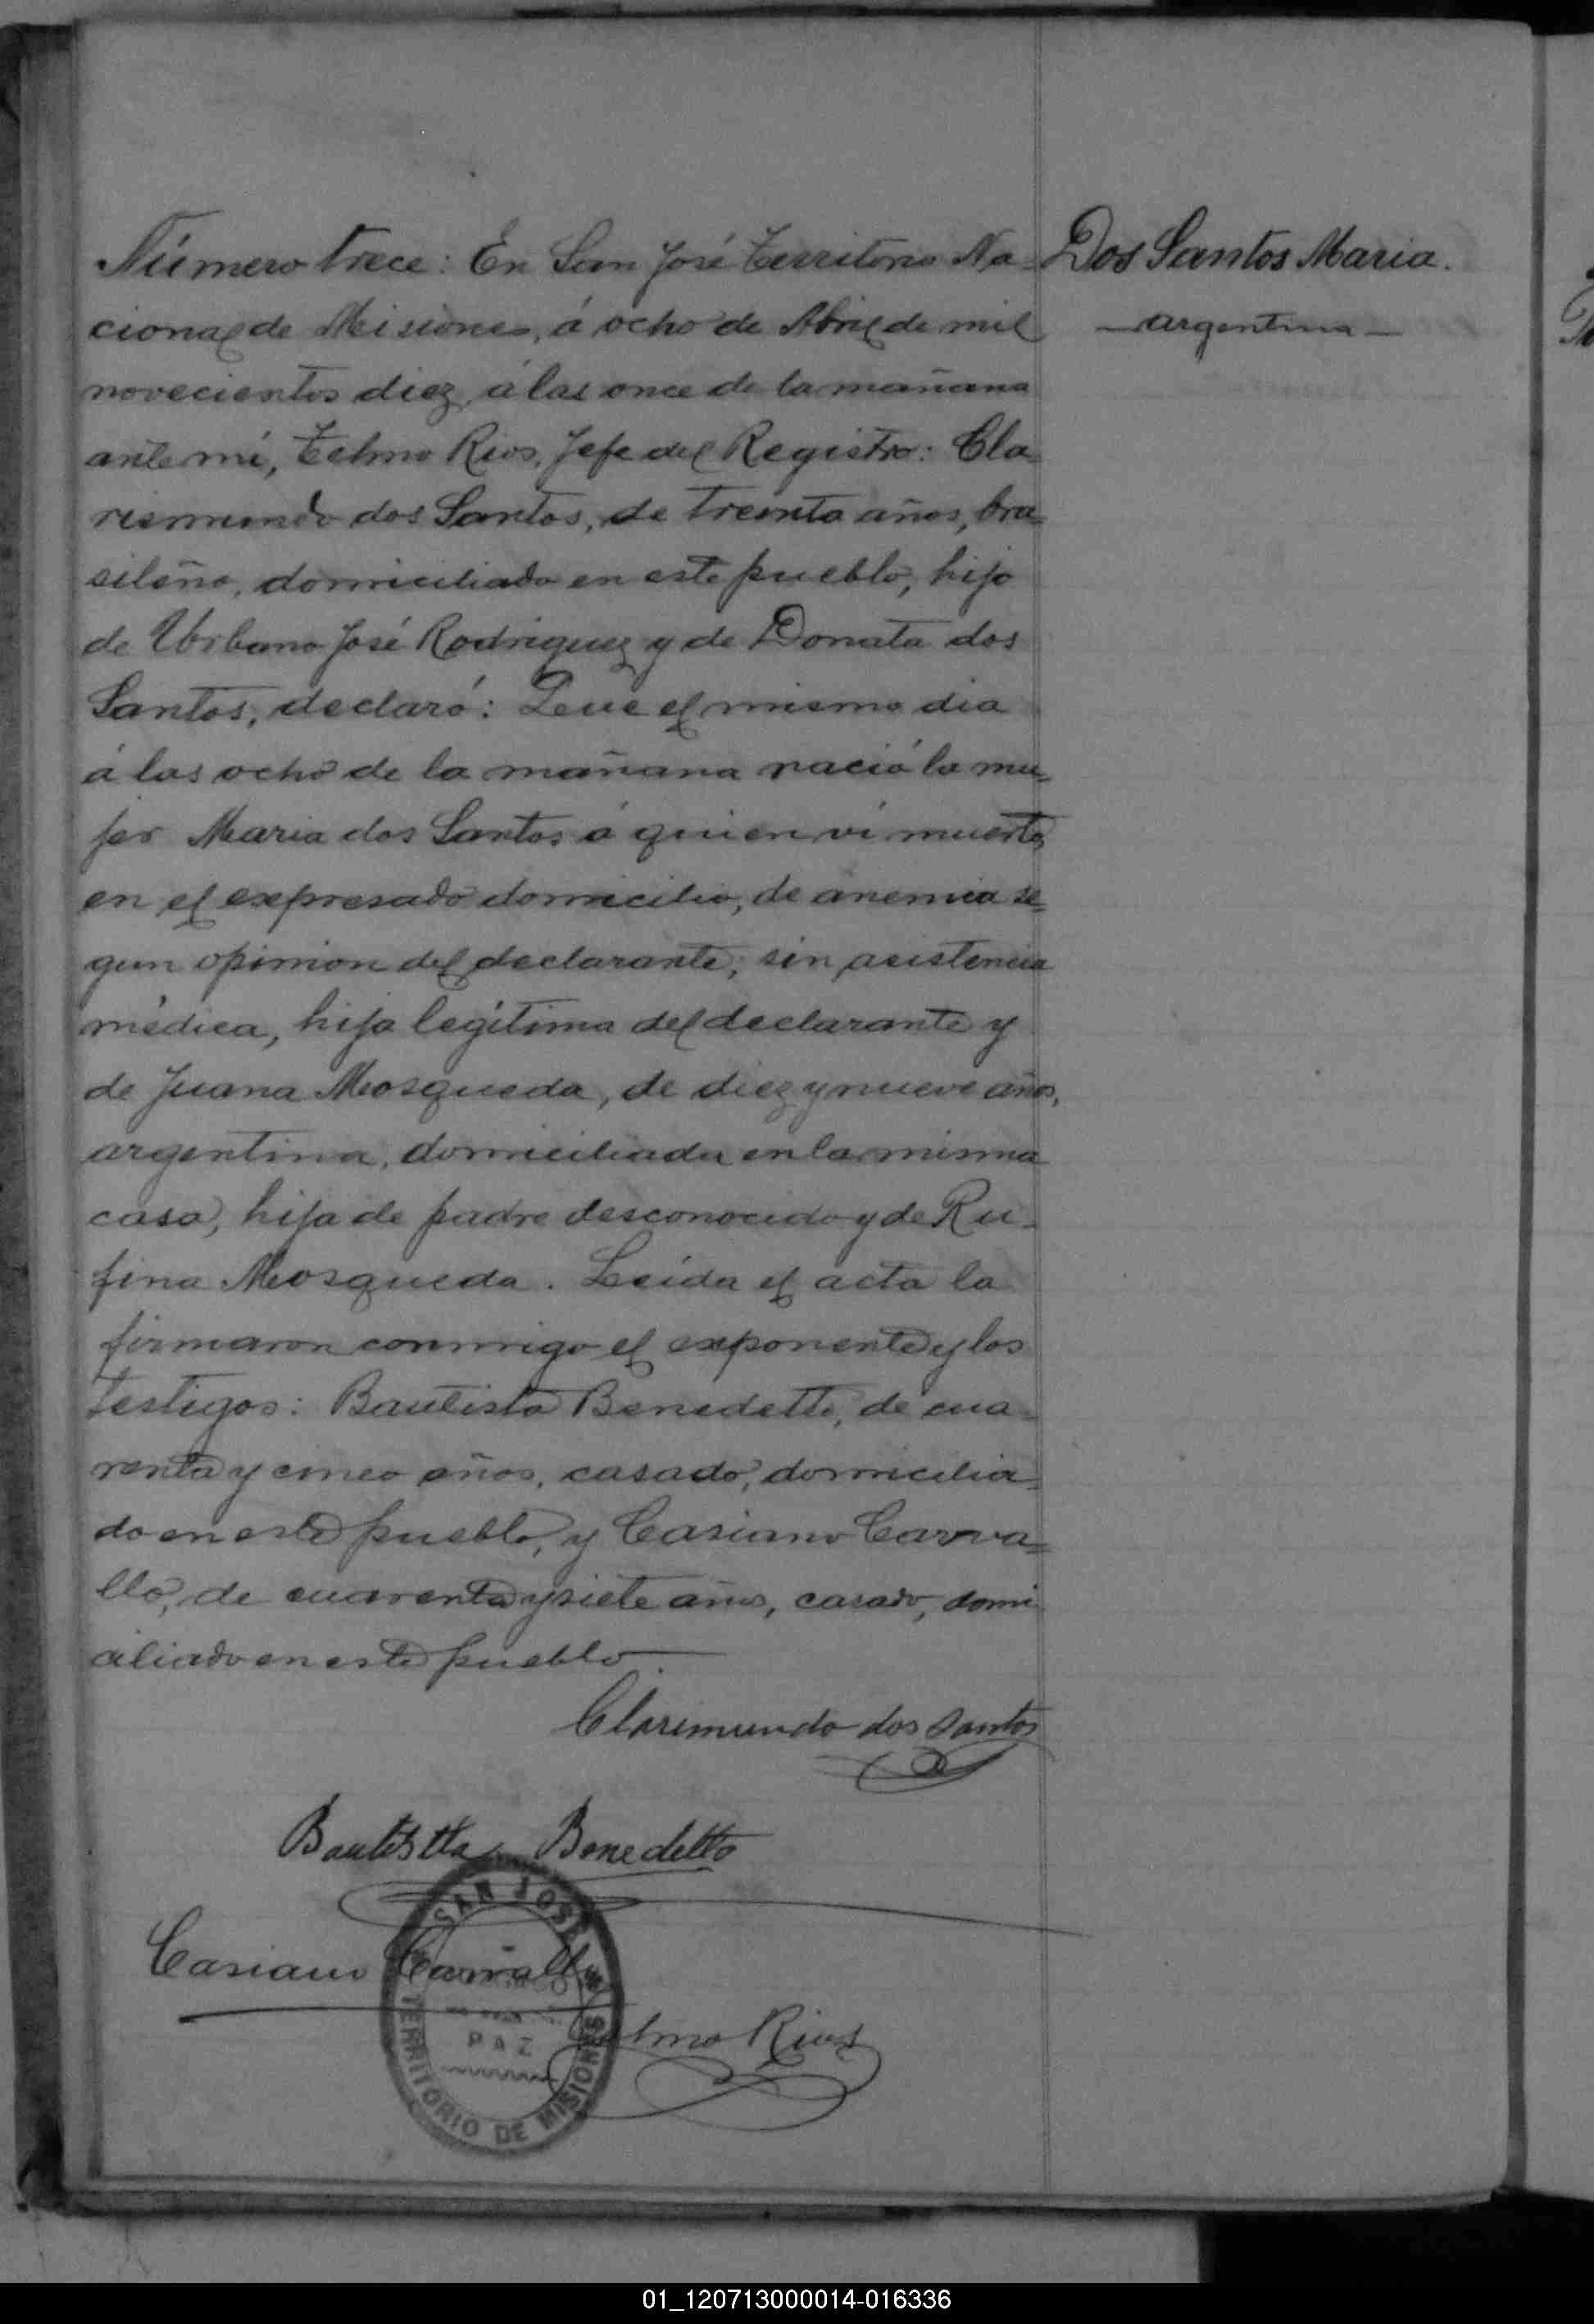 Número trece: En San José Territorio Na-
cional de Misiones, á ocho de Abril de mil
novecientos diez, á las once de la mañana
ante mí, Telmo Rios, Jefe del Registro: Cla-
rismundo dos Santos, de treinta años, bra-
sileño, domiciliado en este pueblo, hijo
de Urbano José Rodriguez y de Donata dos
Santos, declaró: Que el mismo dia
á las ocho de la mañana nació la mu-
jer Maria dos Santos á quien ví muerta
en el expresado domicilio, de anemia se-
gun opinion del declarante, sin asistencia
médica, hija legítima del declarante y
de Juana Mosqueda, de diez y nueve años,
argentina, domiciliada en la misma
casa, hija de padre desconocido y de Ru-
fina Mosqueda. Leida el acta la
firmaron conmigo el exponente y los
testigos: Bautista Benedetto, de cua-
renta y cinco años, casado, domicilia-
do en este pueblo, y Casiano Carva-
llo, de cuarenta y siete años, casado, domi-
ciliado en este pueblo.
Dos Santos Maria.
— argentina —
Clarimundo dos Santos
Bautistta Benedetto
Casiano Carvallo
Telmo Rios
SAN JOSE
PAZ
TERRITORIO DE MISIONES
01_120713000014-016336